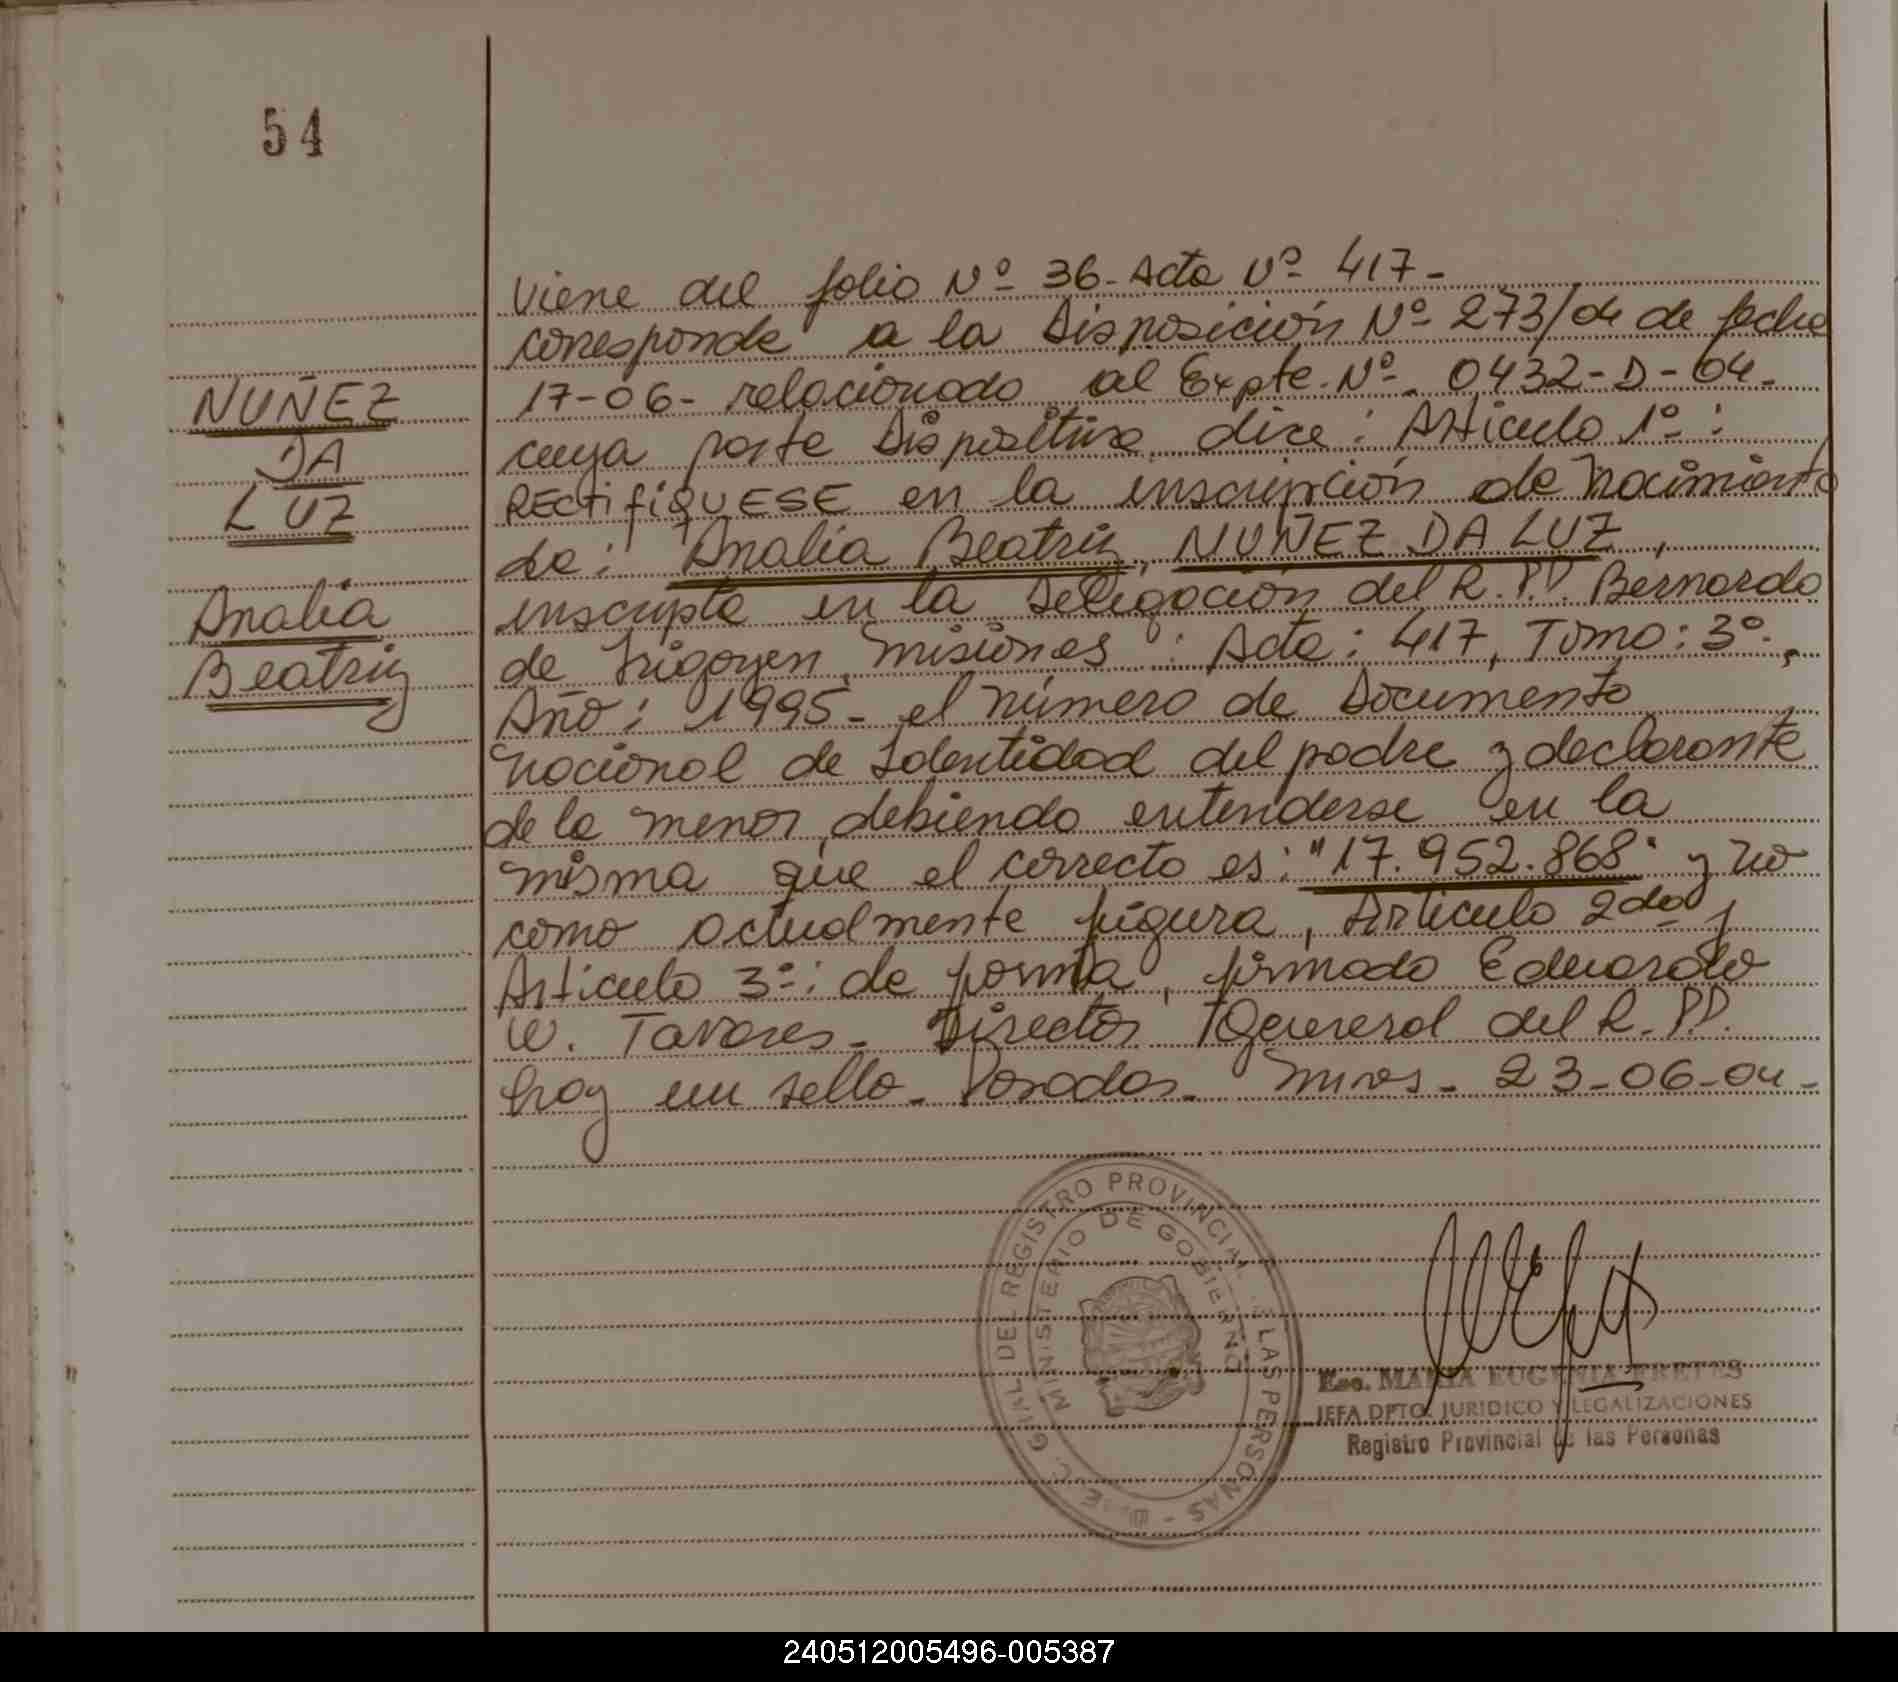 54
NUÑEZ
DA
LUZ
Analia
Beatriz
Viene del folio Nº 36- Acta Nº 417-
corresponde a la Disposición Nº 273/04 de fecha
17-06- relacionado al Expte. Nº 0432-D-04-
cuya parte Dispositiva dice: Articulo 1º:
RECTIFIQUESE en la inscripción de Nacimiento
de: Analia Beatriz, NUÑEZ DA LUZ,
inscripta en la Delegación del R.P.P. Bernardo
de Irigoyen, Misiones: Acta: 417, Tomo: 3º,
Año: 1995- el número de Documento
Nacional de Identidad del padre y declarante
de la menor, debiendo entenderse en la
misma que el correcto es: "17.952.868" y no
como actualmente figura, Articulo 2do y
Articulo 3º: de forma, firmado Eduardo
W. Tavares- Director General del R.P.P.
hay un sello- Posadas- Mnes- 23-06-04-
DEL REGISTRO PROVINCIAL DE LAS PERSONAS
MINISTERIO DE GOBIERNO
Esc. MARIA EUGENIA FRETES
JEFA DPTO. JURIDICO Y LEGALIZACIONES
Registro Provincial de las Personas
240512005496-005387